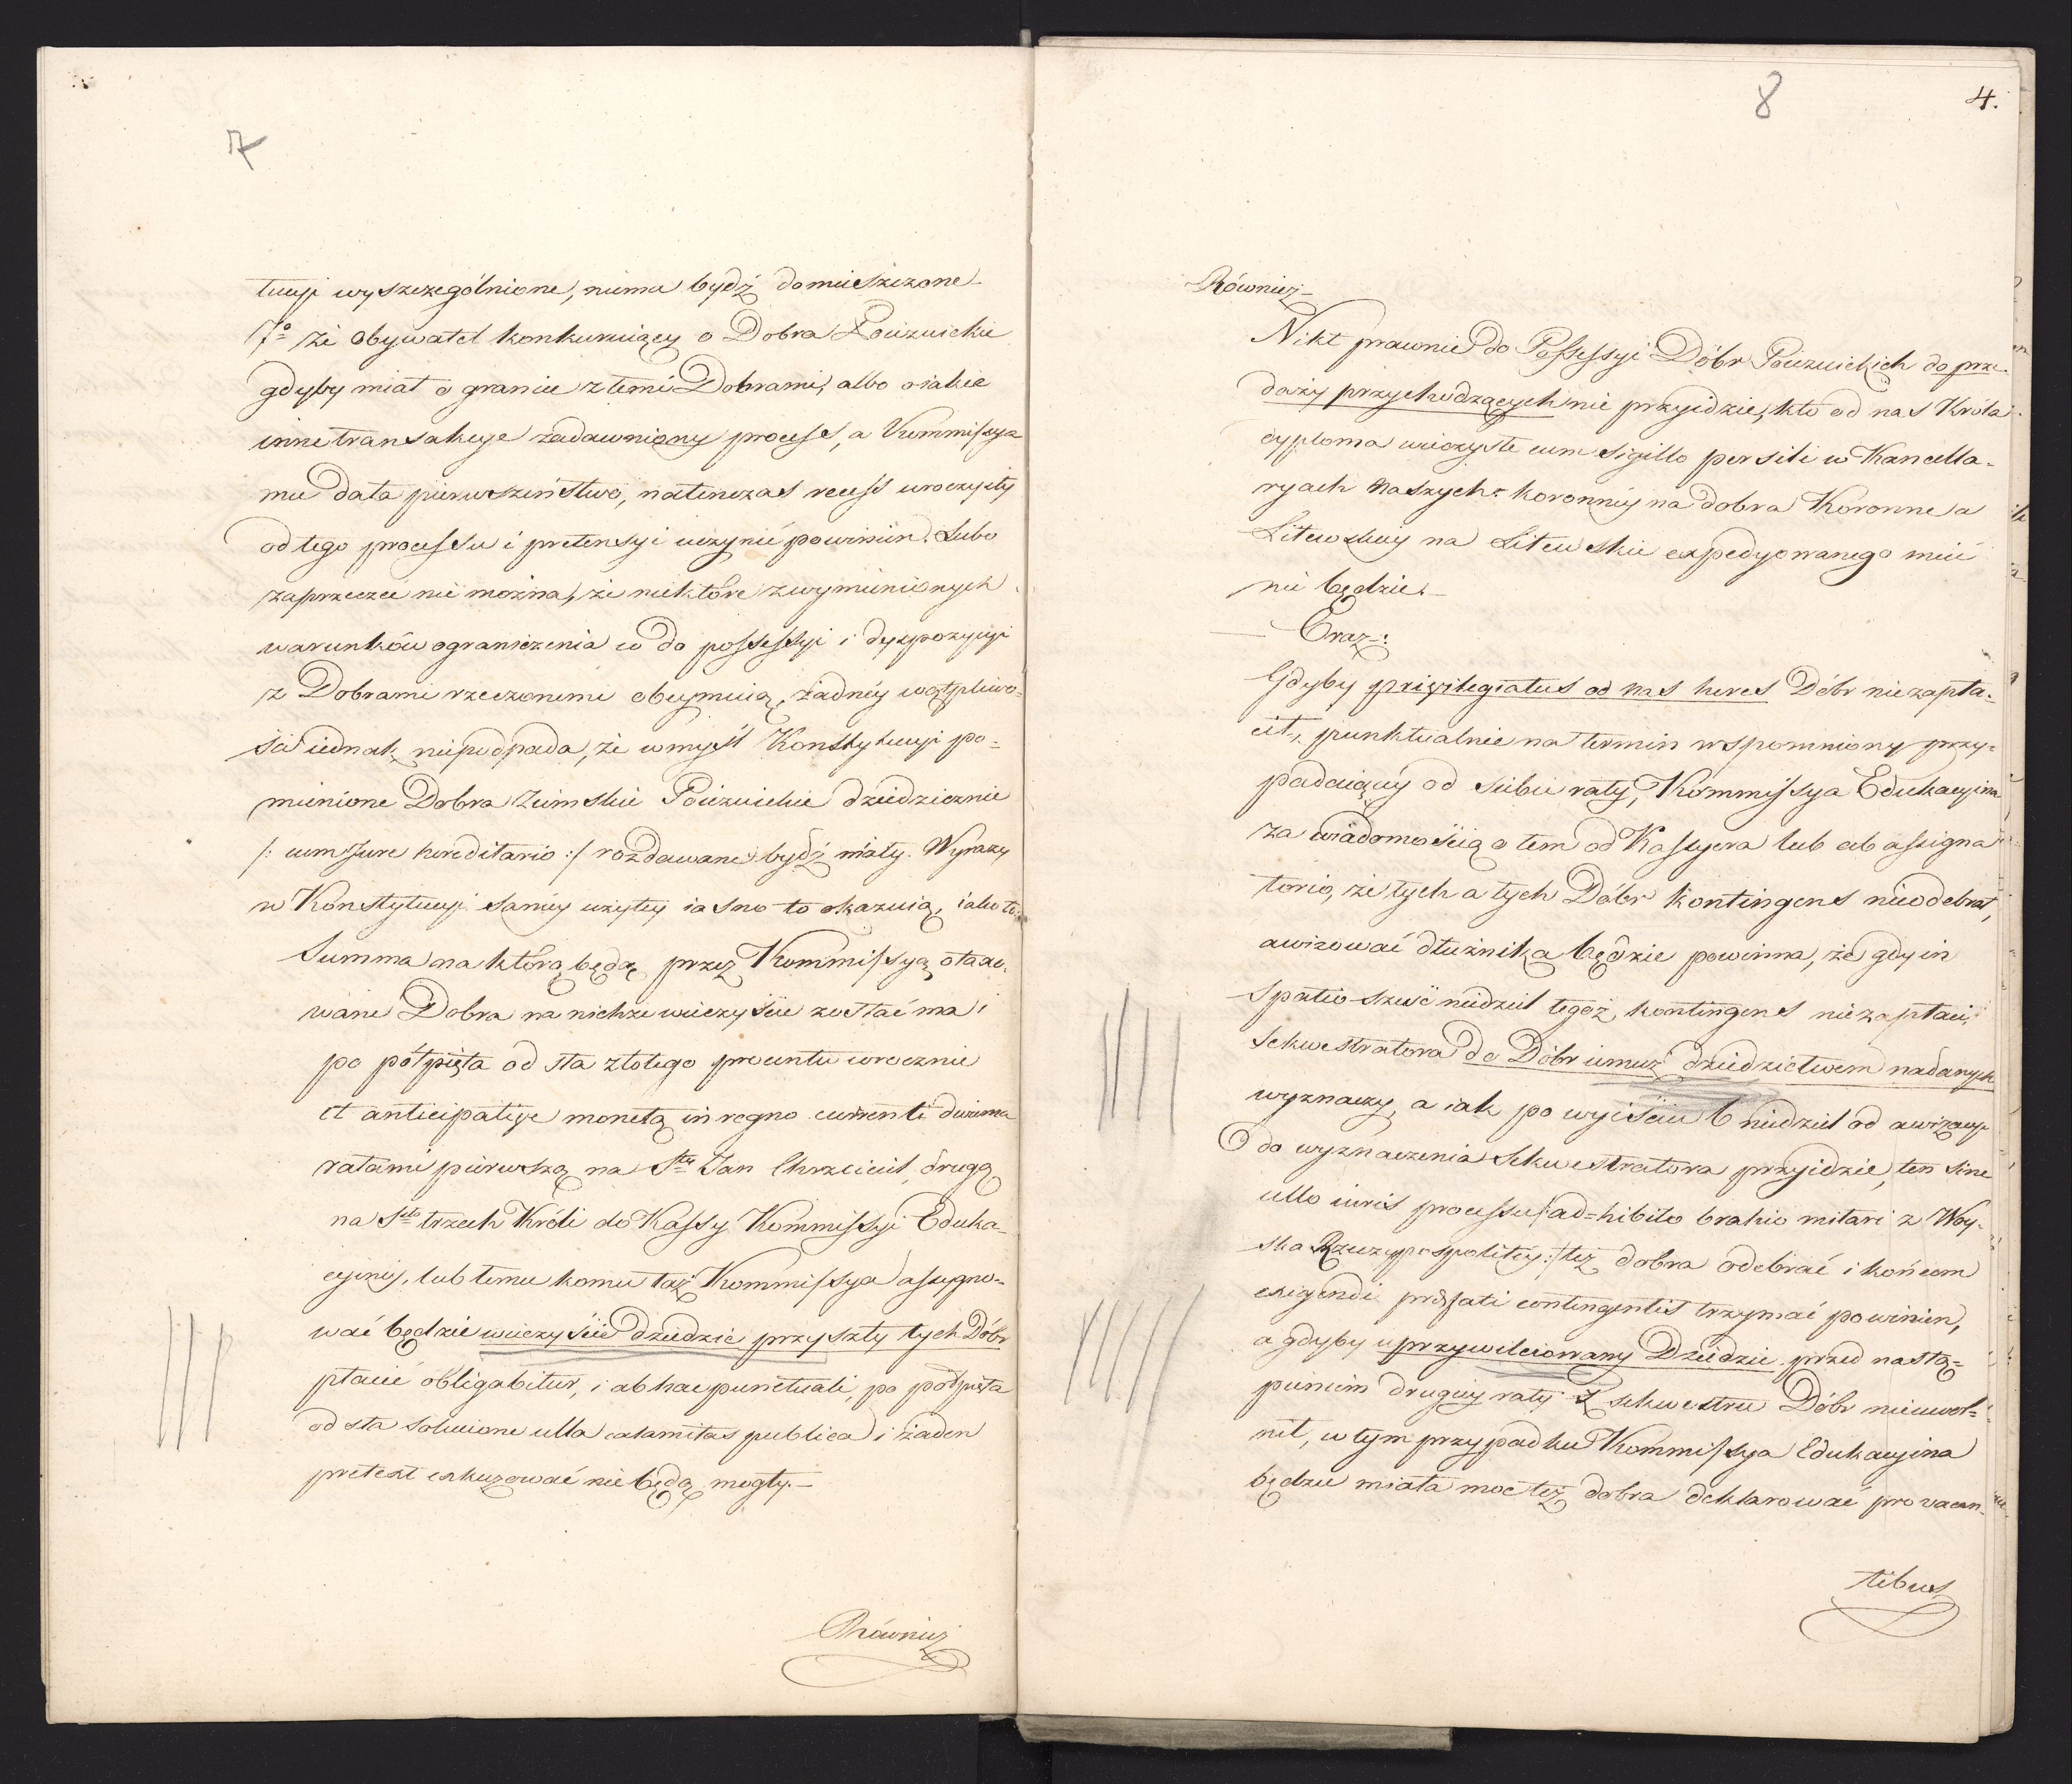 7
tucyi wyszczególnione, niema bydź domieszczone
7º że obywatel konkuruiący o Dobra Poiezuickie
gdyby miał o granice z temi Dobrami, albo o iakie
inne transakcye zadawniony process, a Kommissya
mu dała pierwszeństwo, natenczas recess uroczysty
od tego processu i pretensyi uczynić powinien. Lubo
zaprzeczeć nie można, że niektóre z wymienionych
warunków ograniczenia co do possessyi i dyspozycyi
z Dobrami rzeczonemi obeymuią, żadnéy wątpliwo=
ści iednak niepodpada, że w myśl Konstytucyi po=
mienione Dobra Ziemskie Poiezuickie dziedzicznie
/: cum Jure hereditario :/ rozdawane bydź miały. Wyrazy
w Konstytucyi saméy użytey iasno to okazuią, iako to:
Summa na którą będą przez Kommissyą otaxo=
wane Dobra na nichże wieczyście zostać ma i
po półpięta od sta złotego procentu corocznie
et anticipative monetą in regno currenti dwiema
ratami pierwszą na Sty Jan Chrzciciel, drugą
na Sto trzech Króli do Kassy Kommissyi Eduka=
cyinéj, lub temu komu taż Kommissya assygno=
wać będzie wieczyście dziedzic przyszły tych Dóbr
płacić obligabitur, i ab hac punctuali, po półpięta
od sta solucione ulla calamitas publica i żaden
pretext exkuzować nie będą mogły.—
Również
8
4.
Również—
Nikt prawnie do Possessyi Dóbr Poiezuickich do prze=
daży przychodzących nie przyidzie, kto od nas Króla
dyploma wieczyste cum sigillo persili w Kancella=
ryach Naszych: koronnéy na dobra Koronne a
Litewskiéy na Litewskie expedyowanego mieć
nie będzie.—
— Oraz—:
Gdyby privilegiatus od nas heres Dóbr niezapła=
cił, punktualnie na termin wspomniony przy=
padaiącéy od siebie raty, Kommissya Edukacyina
za wiadomością o tem od Kassyera lub ab assigna=
torio, że tych a tych Dóbr kontingens nieodebrał,
awizować dłużnika będzie powinna, że gdy in
spatio sześć niedziel tegoż kontingens niezapłaci,
sekwestratora do Dóbr iemuż dziedzictwem nadanych
wyznaczy, a iak po wyiściu 6 niedziel od awizacyi
do wyznaczenia sekwestratora przyidzie, ten sine
ullo iuris processu /: ad=hibito brahio mitari z Woy=
ska Rzeczypospolitéy :/ też dobra odebrać i końcem
exigendi præfati contingentis trzymać powinien,
a gdyby uprzywileiowany Dziedzic przed nastą=
pieniem drugiéy raty z sekwestru Dóbr nieuwol=
nił, w tym przypadku Kommissya Edukacyina
będzie miała moc też dobra deklarować pro vacan=
tibus